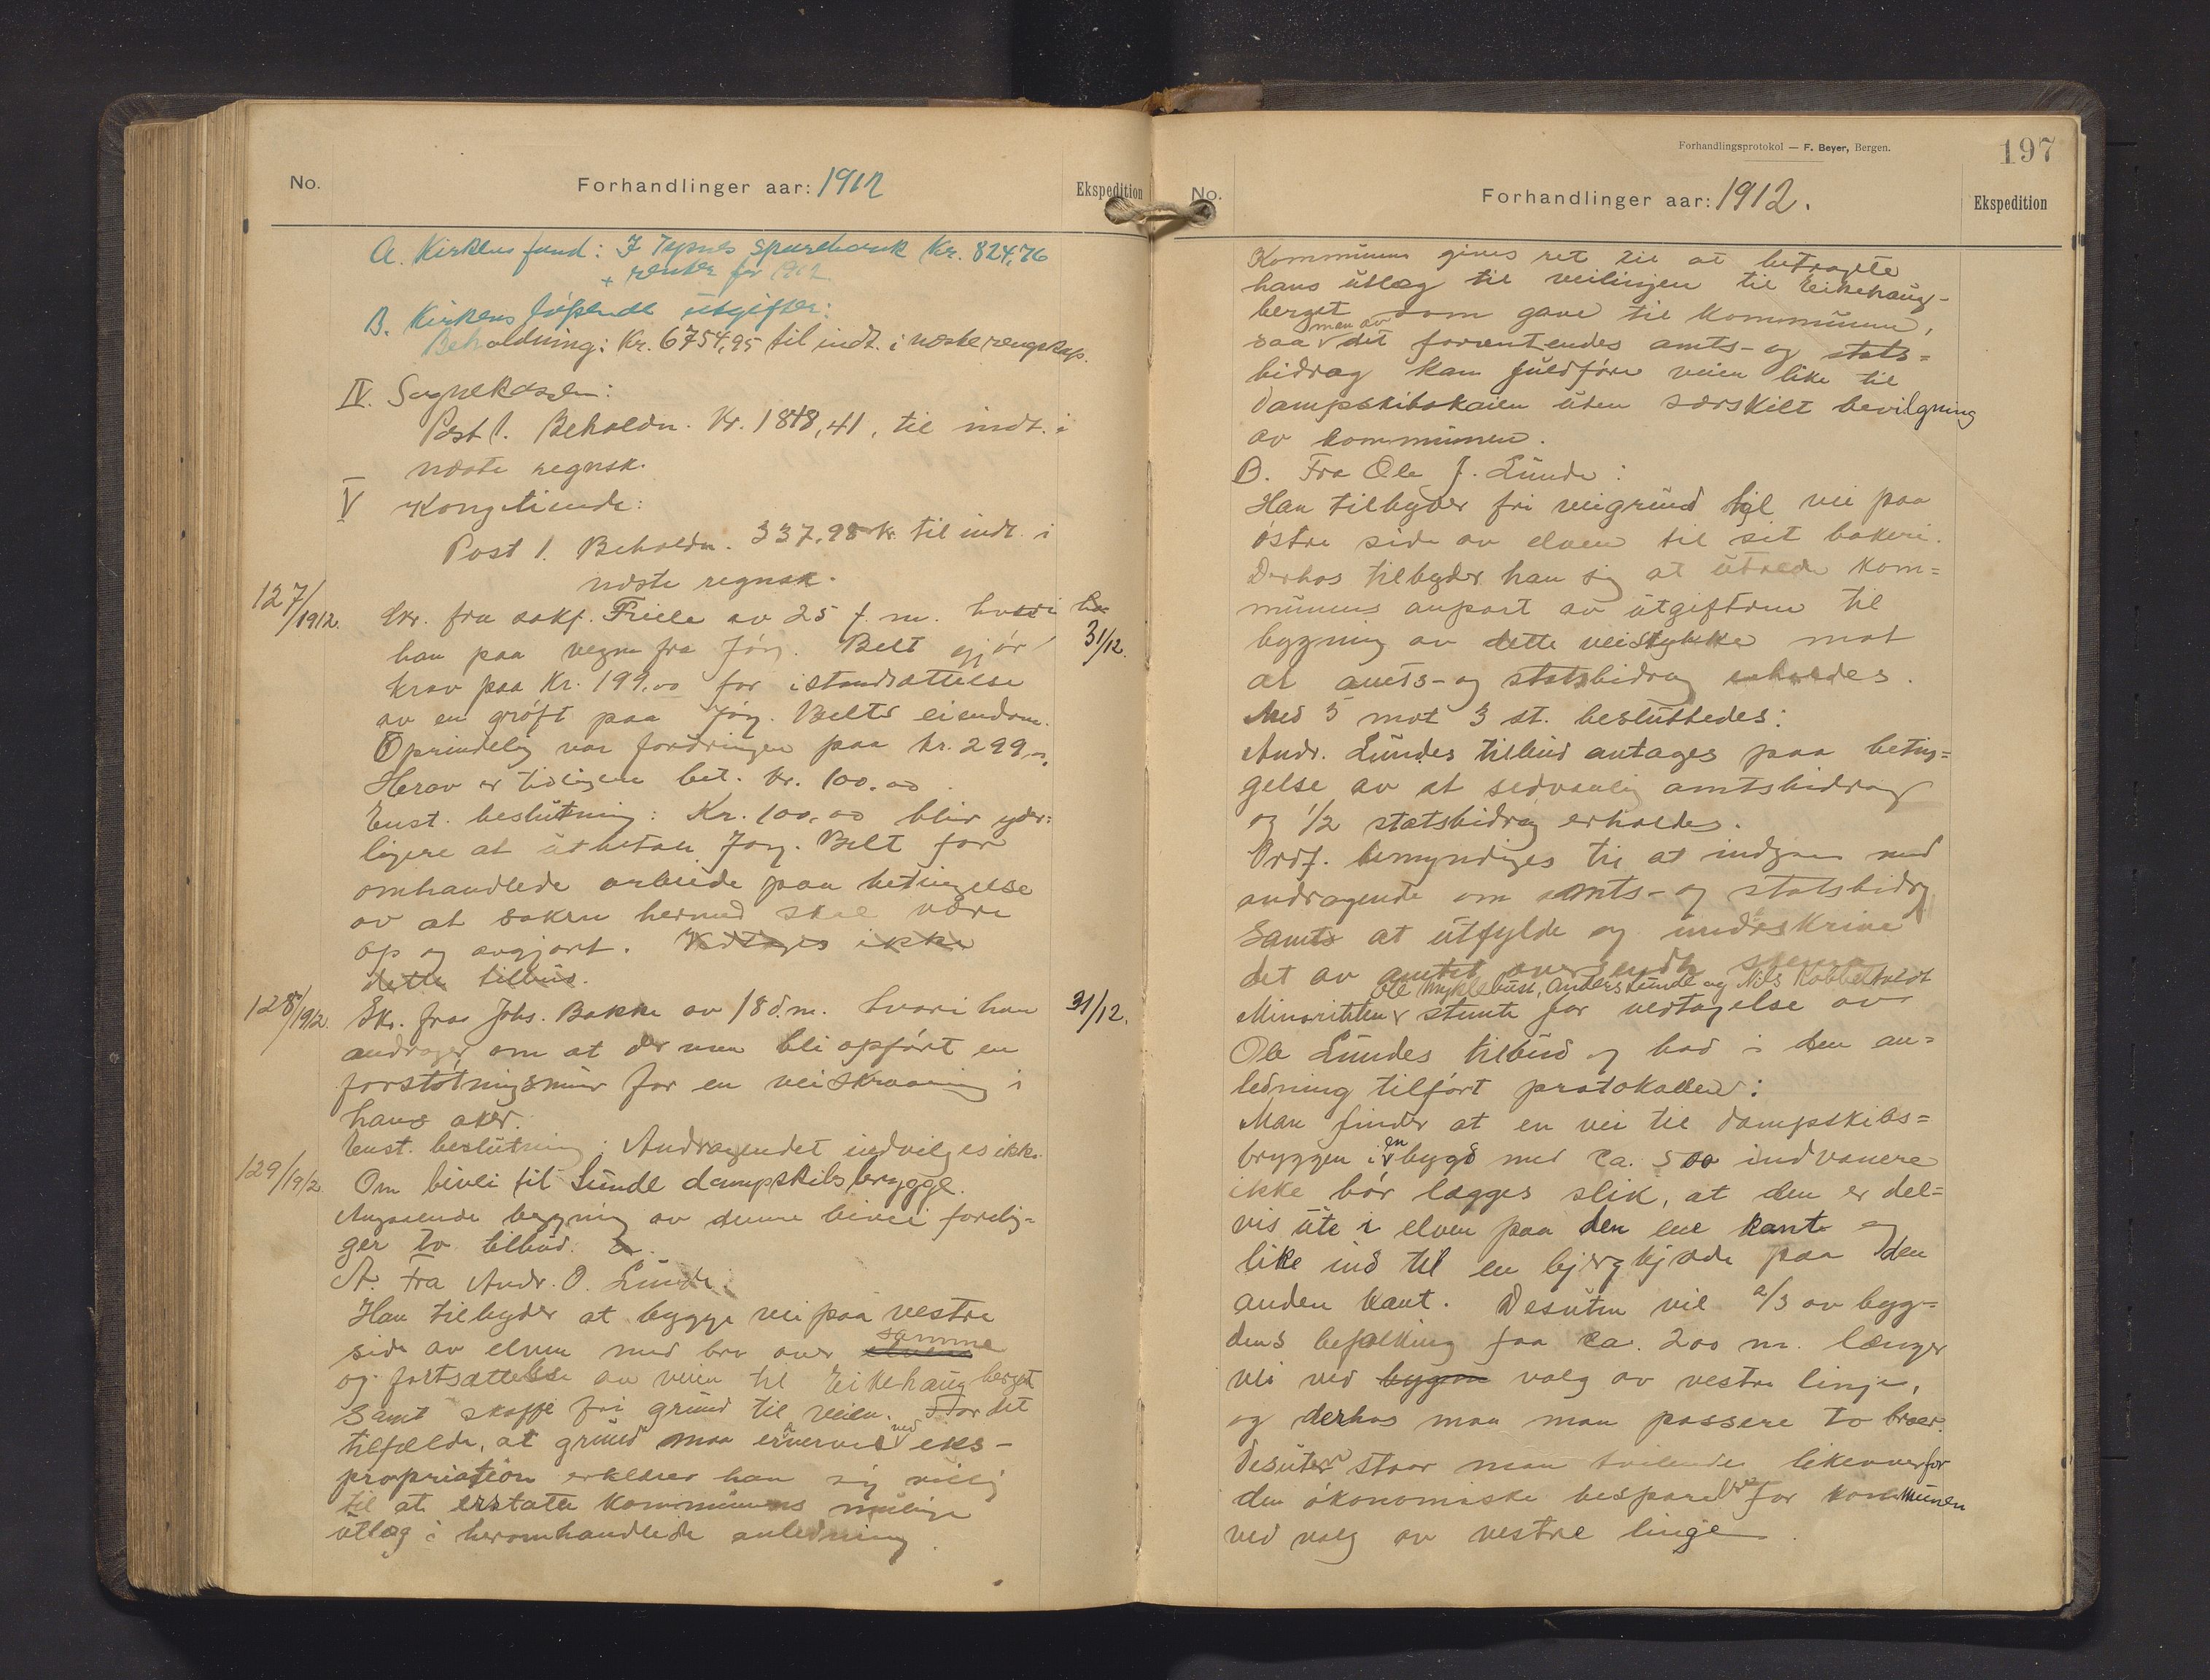 No.
Forhandlinger aar: 1912
Ekspedition
A. Kirkens fund: I Tysnes Sparebank Kr. 824,76
+ renter for 1912
B. Kirkens løpende utgifter:
Beholdning: Kr. 6754,95 til indt. i næste regnskap.
IV. Sognekassen:
Post 1. Beholdn. Kr. 1848,41, til indt. i
næste regnsk.
V Kongetiende:
Post 1. Beholdn. 337,98 kr. til indt. i
næste regnsk.
127/1912. Skr. fra sakf. Friele av 25 f. m. hvori
han paa vegne fra Jørg. Belt gjør
31/12.
krav paa Kr. 199.00 for istandsættelse
av en grøft paa Jørg. Belts eiendom.
Oprindelig var fordringen paa kr. 299,00.
Herav er tidligere bet. kr. 100.00.
Enst. beslutning: Kr. 100,00 blir yder=
ligere at utbetale Jørg. Belt for
omhandlede arbeide paa betingelse
av at saken hermed skal være
op og avgjort. Vedtages ikke
dette tilbud.
128/1912. Skr. fra Johs. Bakke av 18 d.m. hvori han
31/12.
andrager om at der maa bli opført en
forstøtningsmur for en veiskraaning i
hans aker.
Enst. beslutning: Andragendet indvilges ikke.
129/1912 Om bivei til Sunde dampskibsbrygge.
Angaaende bygning av denne bivei forelig=
ger to tilbud.
A. Fra Andr. O. Sunde:
Han tilbyder at bygge vei paa vestre
side av elven med bro over samme
og fortsættelse av veien til Eikehaugberget
samt skaffe fri grund til veien. For det
tilfælde, at grund maa erhverves ved eks-
propriation erklærer han sig villig
til at erstatte kommunens mulige
utlæg i heromhandlede anledning.
Forhandlingsprotokol — F. Beyer, Bergen.
197
No.
Forhandlinger aar: 1912.
Ekspedition
Kommunen gives ret til at betragte
hans utlæg til veilinjen til Eikehaug-
berget som gave til kommunen,
saa man av det forventendes amts- og stats=
bidrag kan fuldføre veien like til
dampskibskaien uten særskilt bevilgning
av kommunen.
B. Fra Ole J. Sunde:
Han tilbyder fri veigrund til vei paa
østre side av elven til sit bakeri.
Derhos tilbyder han sig at utrede kom=
munens anpart av utgifterne til
bygning av dette veistykke mot
at amts- og statsbidrag erholdes.
Med 5 mot 3 st. besluttedes:
Andr. Sundes tilbud antages paa beting=
gelse av at sedvanlig amtsbidrag
og 1/2 statsbidrag erholdes.
Ordf. bemyndiges til at indgaa med
andragende om amts- og statsbidrag
samt at utfylde og underskrive
det av amtet oversendte skema
Ole Myklebust, Anders Sunde og Nils Kobbeltvedt
Minoriteten stemte for vedtagelse av
Ole Sundes tilbud og bad i den an=
ledning tilført protokollen:
Man finder at en vei til dampskibs=
bryggen i en bygd med ca. 500 indvaanere
ikke bør lægges slik, at den er del=
vis ute i elven paa den ene kant og
like ind til en bjergkjæde paa den
anden kant. Desuten vil 2/3 av byg=
dens befolkning faa ca. 200 m. længer
vei ved bygn valg av vestre linje,
og derhos maa man passere to broer.
Desuten staar man tvilende likeoverfor
den økonomiske besparelse for kommunen
ved valg av vestre linge.